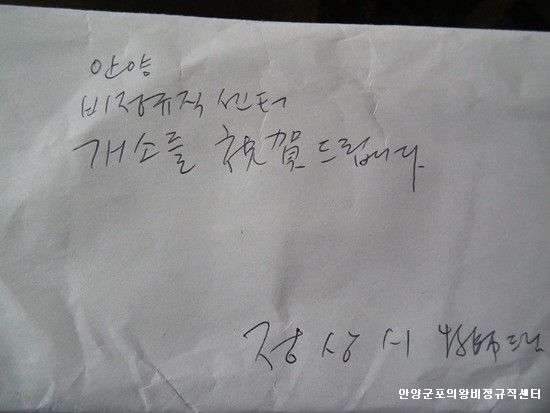 안양
비정규직 센터
개소를 祝賀드립니다.
정상시 牧師드림
안양군포의왕비정규직센터